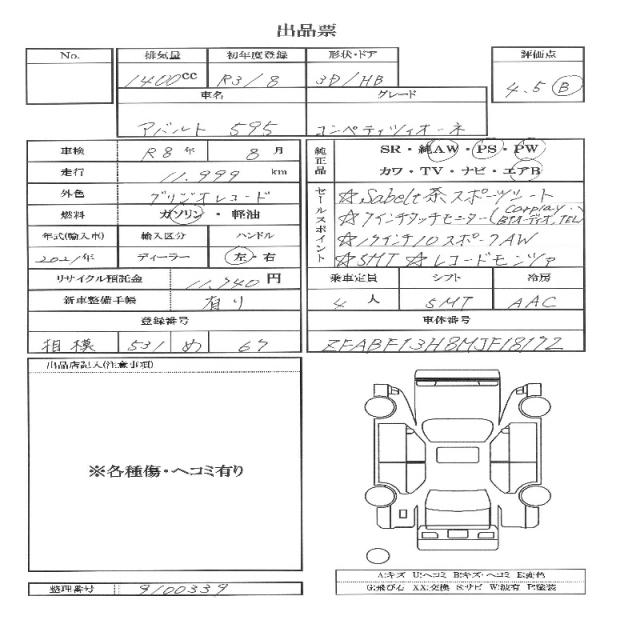 出品票
No. 排気量 初年度登録 形状・ドア 評価点
1400cc R3/8 3D/HB 4.5 B
車名 グレード
アバルト 595 コンペティツィオーネ
車検 R8年 8月
走行 11,999 km
外色 グリジオレコード
燃料 ガソリン・軽油
年式(輸入車) 輸入区分 ハンドル
2021年 ディーラー 左・右
リサイクル預託金 11,940円
新車整備手帳 有り
登録番号
相模 531 め 67
純正品 SR・純AW・PS・PW
カワ・TV・ナビ・エアB
セールスポイント
☆Sabelt茶スポーツシート
☆7インチタッチモニター(Carplay、BTオーディオ,TEL)
☆17インチ10スポークAW
☆5MT ☆レコードモンツァ
乗車定員 シフト 冷房
4人 5MT AAC
車体番号
ZFABF13H8MJF18172
出品店記入(注意事項)
※各種傷・ヘコミ有り
A:キズ U:ヘコミ B:キズ・ヘコミ E:変色
G:飛び石 XX:交換 S:サビ W:波有 P:塗装
整理番号 9100339